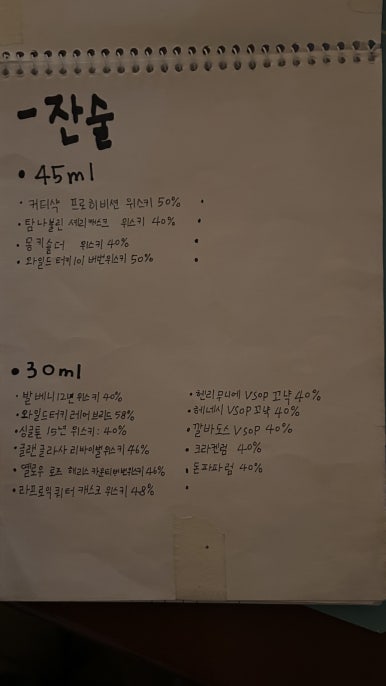 - 잔술
• 45ml
• 커티삭 프로히비션 위스키 50%
• 탐나불린 셰리캐스크 위스키 40%
• 몽키숄더 위스키 40%
• 와일드터키101 버번위스키 50%
• 30ml
• 발베니12년 위스키 40%
• 와일드터키 레어브리드 58%
• 싱글톤 15년 위스키: 40%
• 글랜글라사 리바이벌위스키 46%
• 옐로우 로즈 해리스카운티버번위스키 46%
• 라프로익쿼터 캐스크 위스키 48%
• 헨리무니에 VSOP 꼬냑 40%
• 헤네시 VSOP 꼬냑 40%
• 깔바도스 VSOP 40%
• 크라켄럼 40%
• 돈파파럼 40%